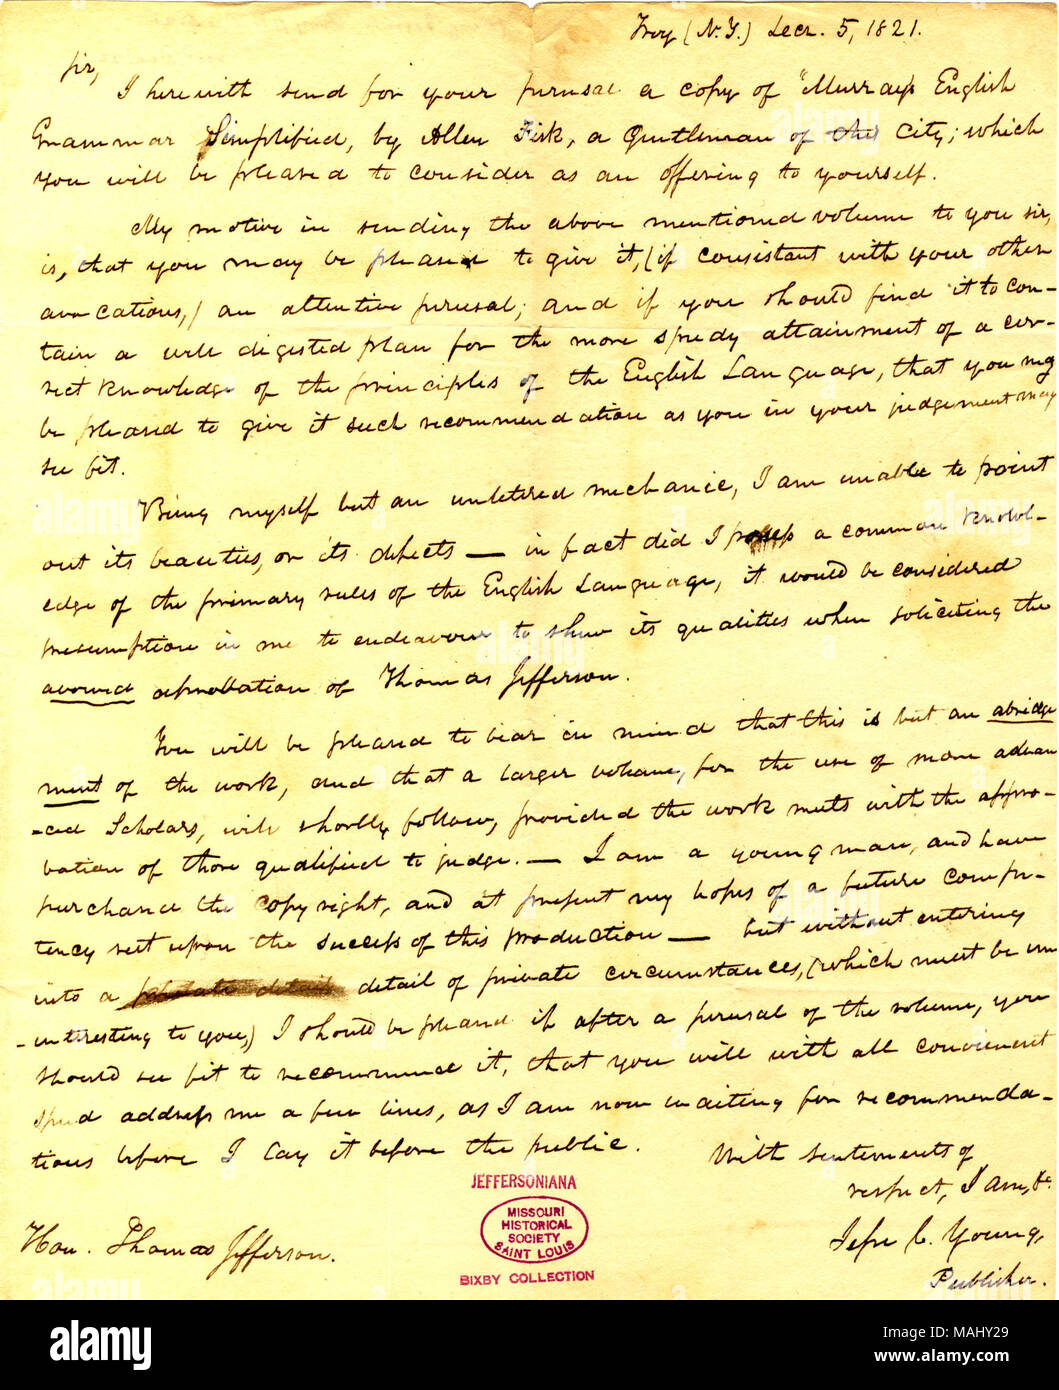 Troy (N.Y.) Decr. 5, 1821.
Sir,
I herewith send for your perusal a copy of "Murray's English
Grammar Simplified, by Allen Fisk, a Gentleman of this City; which
you will be pleased to consider as an offering to yourself.
My motive in sending the above mentioned volume to you sir,
is, that you may be pleased to give it, (if consistant with your other
avocations,) an attentive perusal; and if you should find it to con-
tain a well digested plan for the more speedy attainment of a cor-
rect knowledge of the principles of the English Language, that you may
be pleased to give it such recommendation as you in your judgement may
see fit.
Being myself but an unletered mechanic, I am unable to point
out its beauties, or its defects — in fact did I possess a common knowl-
edge of the primary rules of the English Language, it would be considered
presumption in me to endeavour to shew its qualities when soliciting the
avowed approbation of Thomas Jefferson.
You will be pleased to bear in mind that this is but an abridge
ment of the work, and that a larger volume, for the use of more advan
-ced Scholars, will shortly follow, provided the work meets with the appro-
bation of those qualified to judge. — I am a young man, and have
purchased the copy right, and at present my hopes of a future compe-
tency rest upon the success of this production — but without entering
into a detail of private circumstances, (which must be un
-interesting to you,) I should be pleased if after a perusal of the volume, you
should see fit to recommend it, that you will with all convenient
speed address me a few lines, as I am now waiting for recommenda-
tions before I lay it before the public.
With sentiments of
respect, I am, &c
Jesse C. Young,
Publisher.
Hon. Thomas Jefferson.
JEFFERSONIANA
MISSOURI
HISTORICAL
SOCIETY
SAINT LOUIS
BIXBY COLLECTION
alamy
Image ID: MAHY29
www.alamy.com